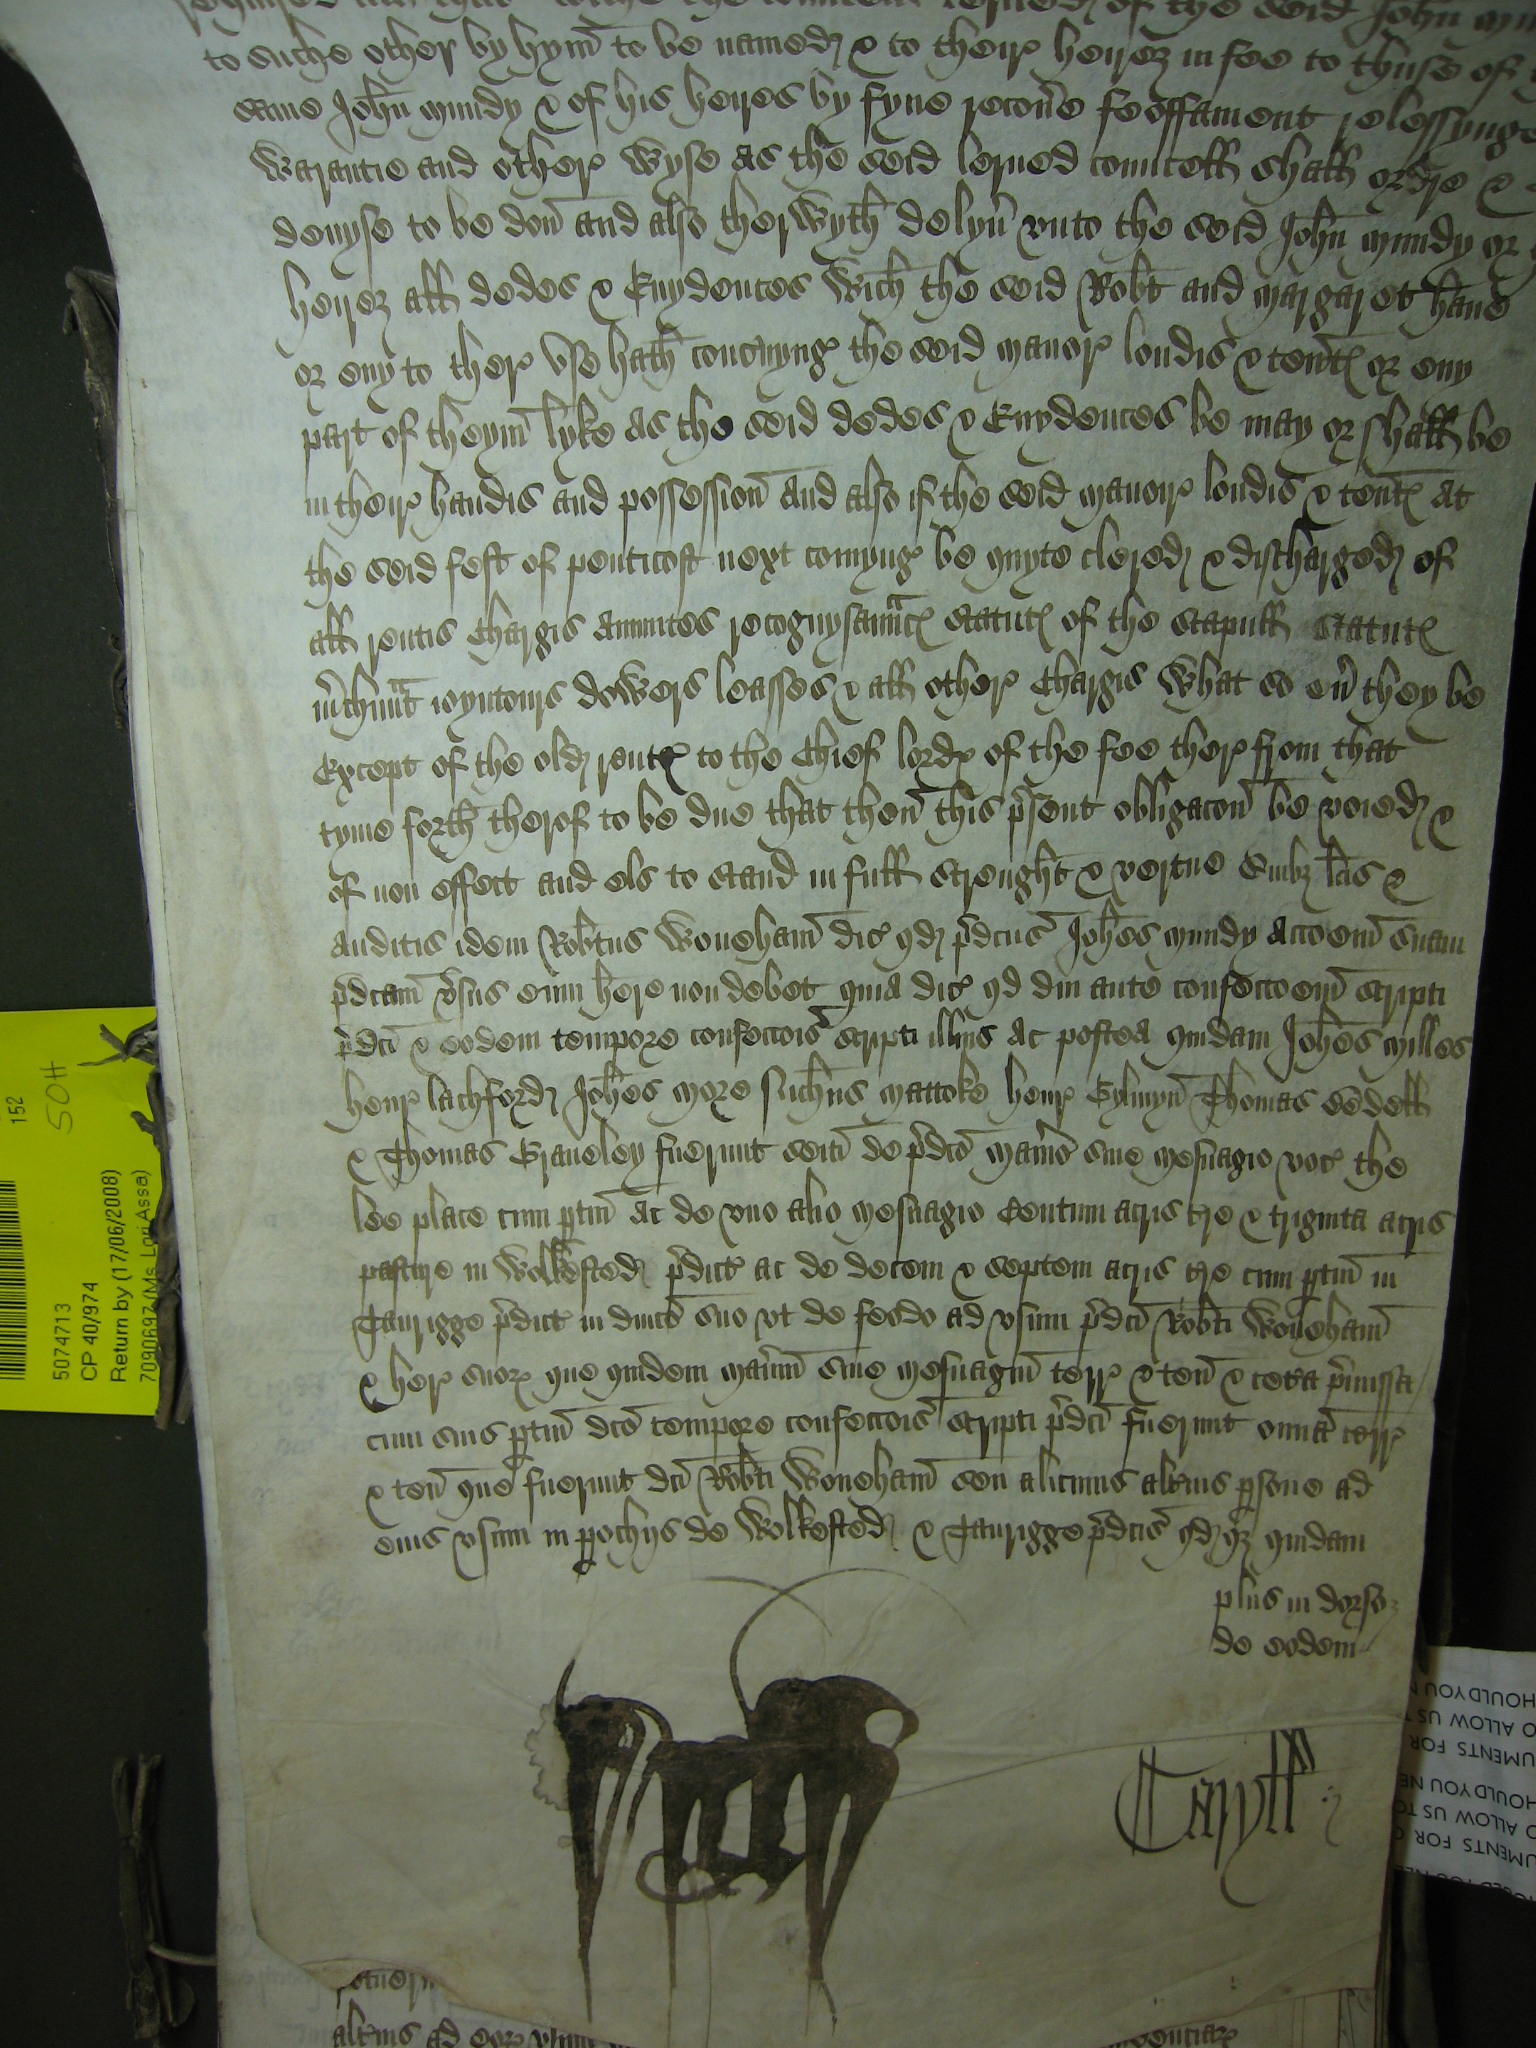 to suche other by hym to be named & to their heires in fee to thuse of
same John Mundy & of his heires by fyne recoṽe feoffament relessynge
Warantie and other Wyse as the seid lerned councell shall ordre &
devyse to be don and also therwyth delyṽ unto the seid John Mundy or
heires all dedes & Evydences Wich the seid Robt and Margaret have
or eny to ther use hath conc̃nyng the seid manor londis & ten̄tes or eny
part of theym lyke as the seid dedes & Evydences be may or shall be
in their handis and possession And also if the seid manoir londis & ten̄tes At
the seid fest of penticost next comyng be quyte clered & discharged of
all rentis Chargis Annuites recognysaun̄ces statutes of the stapull statutes
m̃chaunt ioyntours dowers leasses & all other Chargis What so eṽ they be
Except of the old rentes to the Chief lordes of the fee ther from that
tyme forth therof to be due that then this p̃sent obligacon be voied &
of non effect and els to stand in full strenght & vertue Quibz l̃cis &
auditis idem Rob̃tus Woneham dic̃ qd p̃dc̃us Joh̃es Mundy Acc̃oem suam
p̃dc̃am v̾sus eum h̃ere non debet quia dic̃ qd diu ante confecc̃oem scripti
p̃dc̃i & eodem tempore confecc̃ois scripti illius Ac postea quidam Joh̃es Milles
henr̃ lachford Joh̃es More Nich̃us Mattoke henr̃ Thomas
& Thomas Graveley fuerunt sei̾ti de p̃dc̃o Man̾io sive Mesuagio voc̃ the
lee place cum p̱tin̄ Ac de uno alio Mesuagio Centum acris t̾re & triginta acris
pasture in Wolkested p̃dict̃ ac de decem & septem acris t̾re cum p̱tin̄ in
Taurigge p̃dict̃ in dn̄ico suo ut de feodo ad usum p̃dc̃i Rob̃ti Woneham
& her̃ suor̃ que quidem Man̾ium sive Mesuagium terr̃ & ten̄ & cet̾a p̃missa
cum suis p̱tin̄ dc̃o tempore confecc̃ois scripti p̃dc̃i fuerunt om̄ia terr̃
& ten̄ que fuerunt dc̃i Rob̃ti Woneham seu alicuius alt̾ius p̱sone ad
eius usum in p̱ochijs de Wolkested & Taurigge p̃dc̃is quidam
plus in dorso
de eodem
Caryll
152
50H
5074713
CP 40/974
Return by (17/06/2008)
7090697 (Ms Lori Assa)